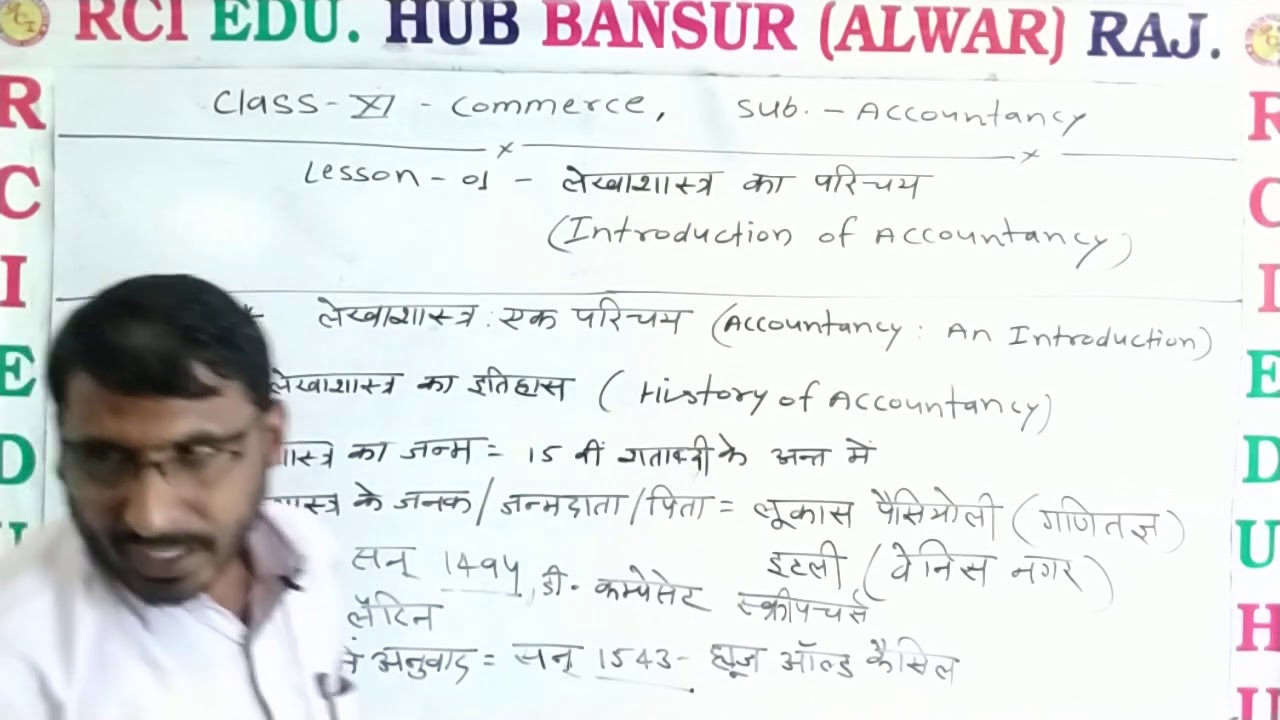 RCI EDU. HUB BANSUR (ALWAR) RAJ.
Class-XI - Commerce, Sub. - Accountancy
Lesson - 01 - लेखाशास्त्र का परिचय
(Introduction of Accountancy)
लेखाशास्त्र : एक परिचय (Accountancy : An Introduction)
लेखाशास्त्र का इतिहास ( History of Accountancy)
शास्त्र का जन्म = 15 वीं शताब्दी के अन्त में
शास्त्र के जनक/जन्मदाता/पिता = लूकास पैसियोली (गणितज्ञ)
सन् 1494, इटली (वेनिस नगर)
डी. कम्पेसेट स्क्रीपचर्स
लैटिन
में अनुवाद = सन् 1543 - ह्यूज ऑल्ड कैसिल
R
C
I
E
D
U
R
C
I
E
D
U
H
U